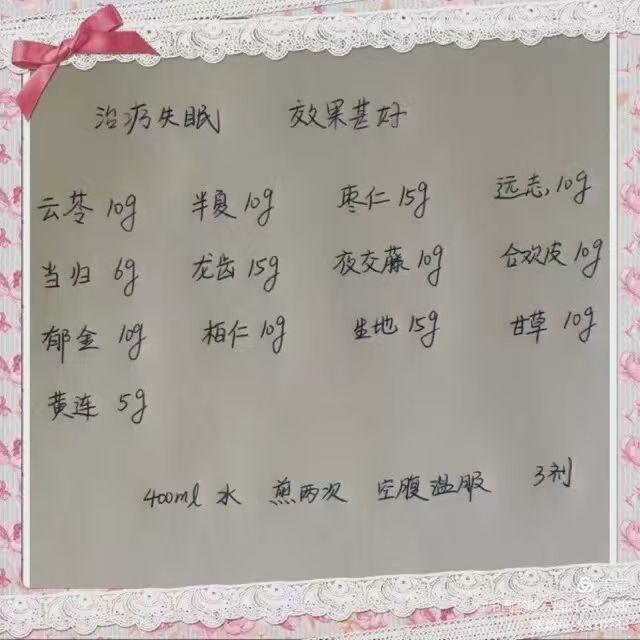 治疗失眠 效果甚好
云苓 10g 半夏 10g 枣仁 15g 远志 10g
当归 6g 龙齿 15g 夜交藤 10g 合欢皮 10g
郁金 10g 柏仁 10g 生地 15g 甘草 10g
黄连 5g
400ml 水 煎两次 空腹温服 3剂